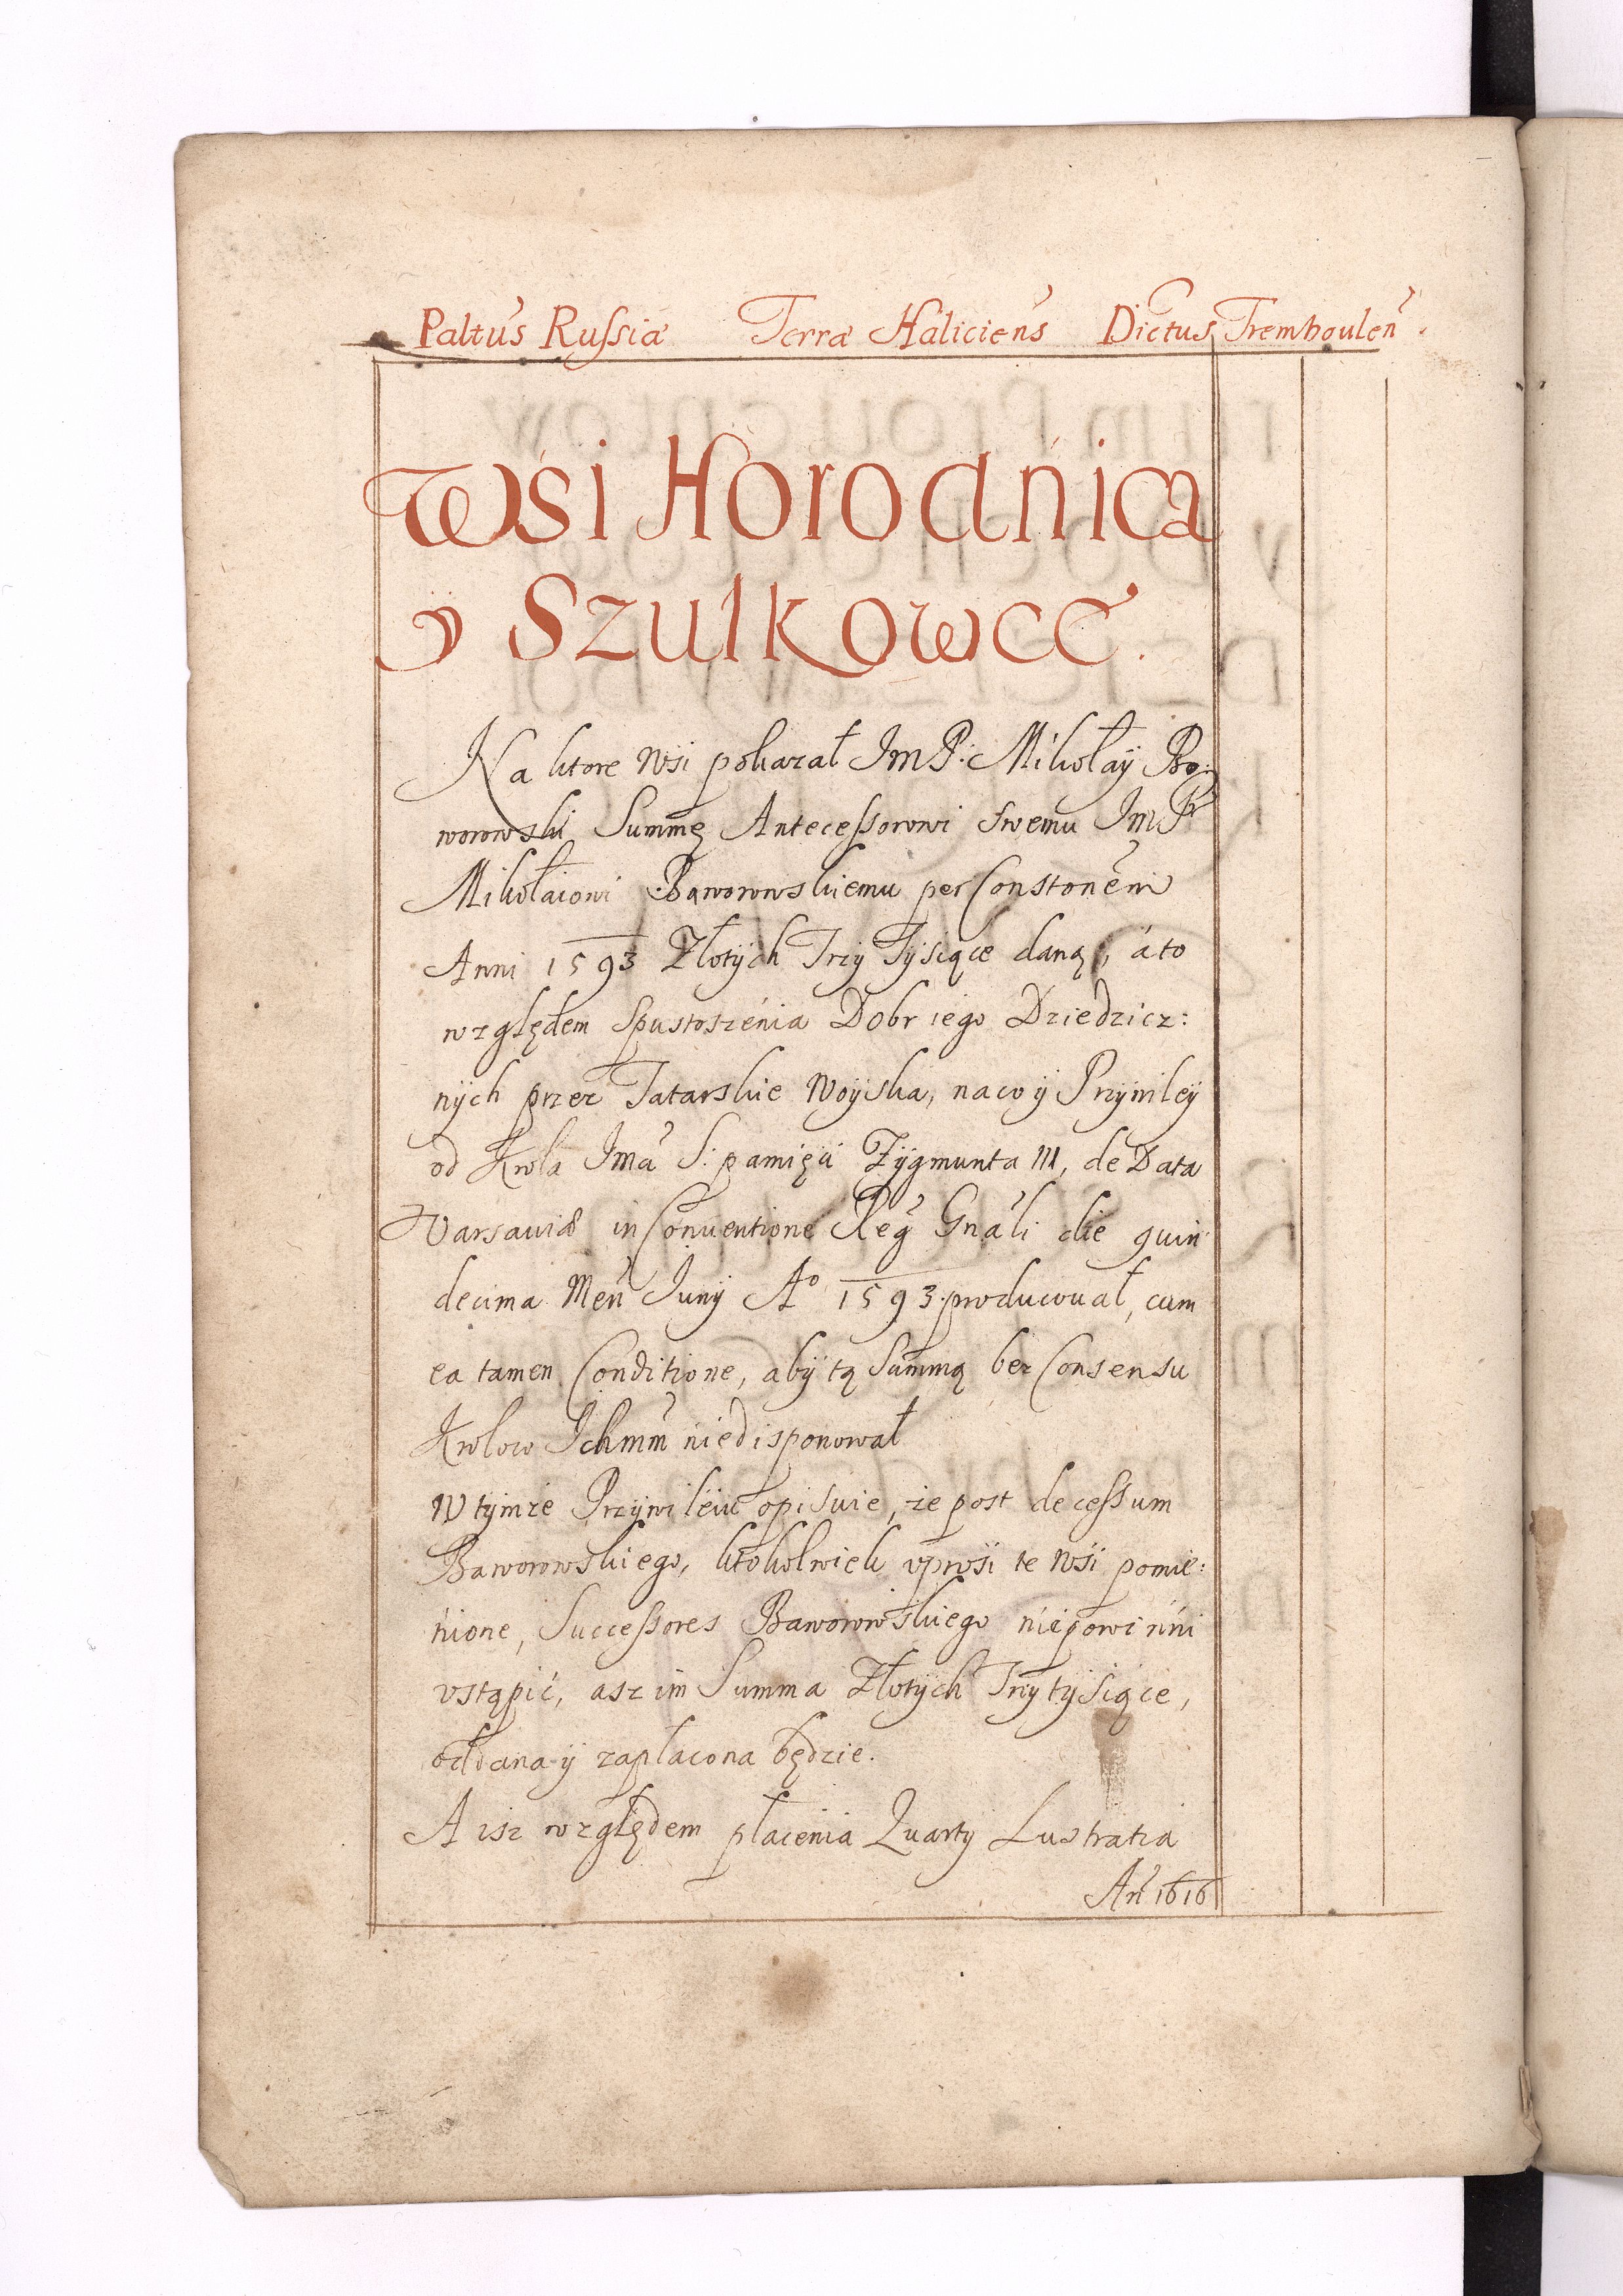 Paltus Russiæ Terræ Haliciens Dictus Tremboulen.
Wsi Horodnica
y Szulkowce.
Na ktore Wsi pokazał Im P. Mikołaÿ Bo:
worowski Summę Antecessorowi swemu Im P
Mikołaiowi Baworowskiemu per Constonem
Anni 1593 Złotych Trzy Tysiące daną, á to
względem Spustoszenia Dobr iego Dziedzicz:
nÿch przez Tatarskie Woÿska, na co ÿ Przÿwileÿ
od Krola Imci S: pamięci Zÿgmunta III, de Data
Varsaviæ in Conventione Reg Gnali die quin
decima Men Junÿ Aº 1593. producował, cum
ea tamen Conditione, abÿ tą Summą bez Consensu
Krolow Ichmm niedisponował
W tÿmże Przÿwileiu opisuie, że post decessum
Baworowskiego, ktokolwiek vprosi te Wsi pomie:
nione, Successores Baworowskiego niepowinni
vstąpić, asz im Summa Złotÿch Trzÿ tÿsiące,
oddana ÿ zapłacona będzie.
A isz względem płacenia Quartÿ Lustratia
An 1616